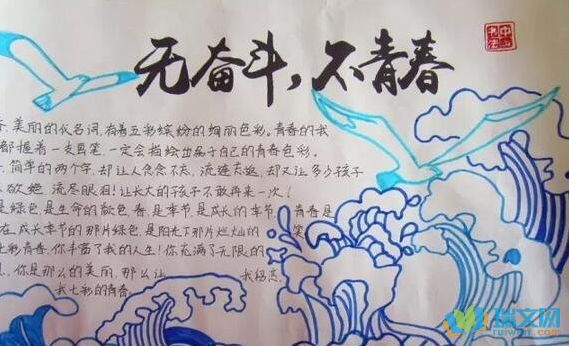 无奋斗，不青春
中国
书法
春，美丽的代名词，有着五彩缤纷的绚丽色彩。青春的我
都握着一支画笔，一定会描绘出属于自己的青春色彩。
简单的两个字，却让人念念不忘，流连忘返，却又让多少孩子
欲绝，流尽眼泪！让长大的孩子不敢再来一次！
是绿色，是生命的颜色，春，是季节，是成长的季节，青春是
在成长季节的那片绿色，是阳光下那片烂灿的 笑
七彩青春，你丰富了我的人生！你充满了无限的
你是那么的美丽，那么让 我
我七彩的青春
瑞文网
ruiwen.com